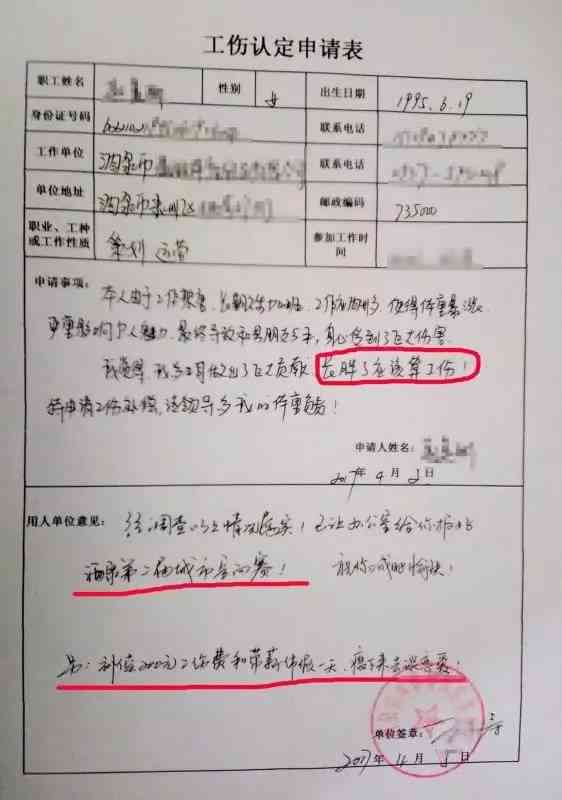 工伤认定申请表
职工姓名 性别 女 出生日期 1995.6.19
身份证号码 联系电话
工作单位 酒泉市 联系电话
单位地址 酒泉市肃州区 邮政编码 735000
职业、工种或工作性质 策划 运营 参加工作时间
申请事项：本人由于工作繁重，长期 加班，工作 使得体重暴涨，
严重影响个人魅力，最终导致和男朋友分手，身心受到了巨大伤害。
我觉得，我为公司做出了巨大贡献，长胖了应该算工伤！
特申请工伤补偿，请领导为我的体重负责！
申请人姓名：
2017年4月2日
用人单位意见：经调查以上情况属实！已让办公室给你报名
酒泉第二届城市 赛！ 祝你减肥愉快！
另：补偿200元工伤费和带薪休假一天，瘦下来去谈恋爱！
单位签章：
2017年4月5日